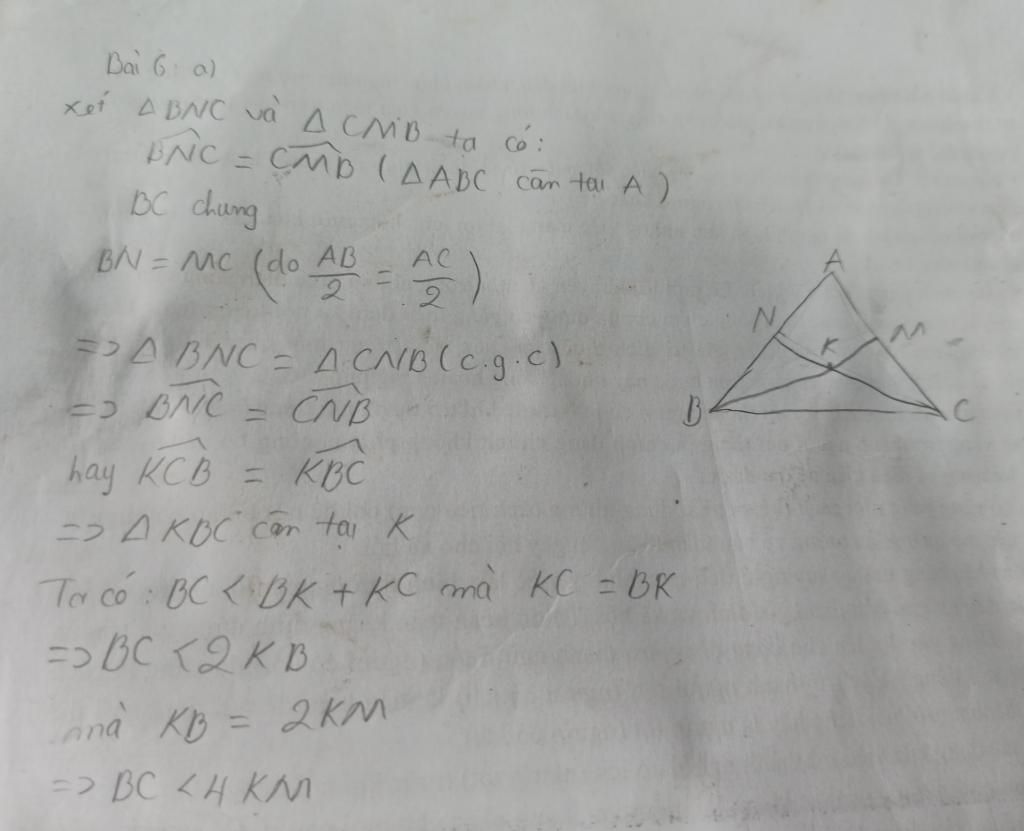 Bài 6: a)
xét Δ BNC và Δ CMB ta có:
$\widehat{BNC}$ = $\widehat{CMB}$ (ΔABC cân tại A)
BC chung
BN = MC (do $\frac{AB}{2}$ = $\frac{AC}{2}$)
=> Δ BNC = Δ CNB (c.g.c)
=> $\widehat{BNC}$ = $\widehat{CNB}$
hay $\widehat{KCB}$ = $\widehat{KBC}$
=> Δ KBC cân tại K
Ta có: BC < BK + KC mà KC = BK
=> BC < 2 KB
mà KB = 2KM
=> BC < 4 KM
A
N
M
K
B
C